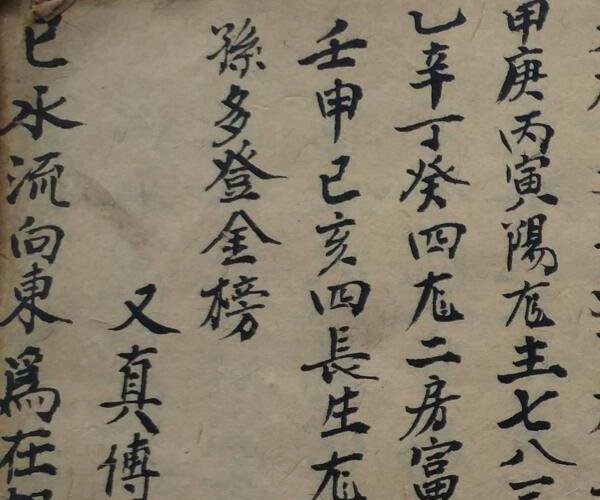 甲庚丙寅陽主七八
乙辛丁癸四二房富
壬申巳亥四長生
孫多登金榜
又真傅
巳水流向東爲在